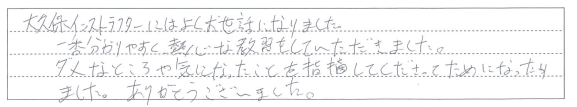 大久保インストラクターにはよくお世話になりました
一番分かりやすく、熱心な教習をしていただきました。
ダメなところや気になったことを指摘してくださってためになったり
ました。ありがとうございました。